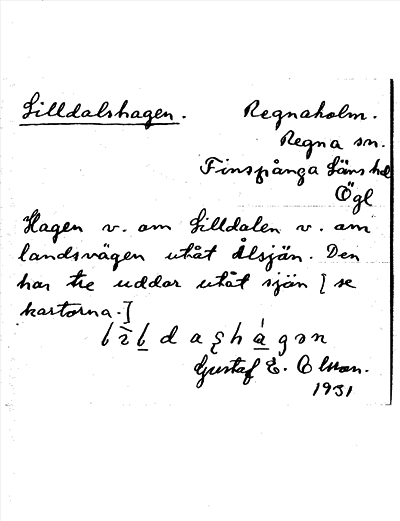 Lilldalshagen.
Regnaholm.
Regna sn.
Finspånga Läns hd
Ögl
Hagen v. om Lilldalen v. om
landsvägen utåt Ålsjön. Den
har tre uddar utåt sjön [se
kartorna.]
Gustaf E. Olsson.
1931